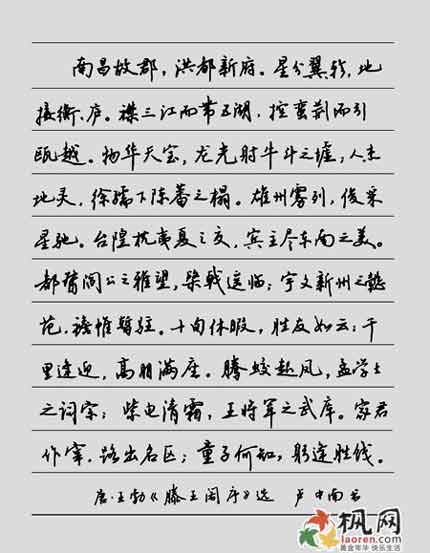 南昌故郡，洪都新府。星分翼轸，地
接衡、庐。襟三江而带五湖，控蛮荆而引
瓯越。物华天宝，龙光射牛斗之墟；人杰
地灵，徐孺下陈蕃之榻。雄州雾列，俊采
星驰。台隍枕夷夏之交，宾主尽东南之美。
都督阎公之雅望，棨戟遥临；宇文新州之懿
范，襜帷暂驻。十旬休暇，胜友如云；千
里逢迎，高朋满座。腾蛟起凤，孟学士
之词宗；紫电清霜，王将军之武库。家君
作宰，路出名区；童子何知，躬逢胜饯。
唐·王勃《滕王阁序》选 卢中南书
枫网
laoren.com
黄金年华 快乐生活